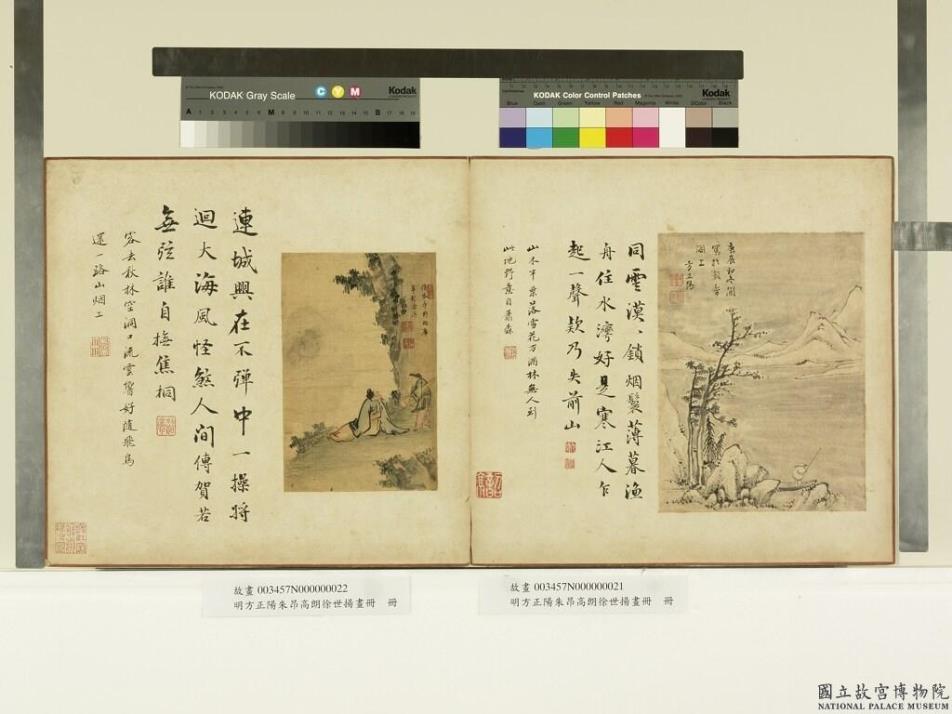 KODAK Gray Scale
C Y M
Kodak
A 1 2 3 4 5 6 M 8 9 10 11 12 13 14 15 B 17 18 19
KODAK Color Control Patches
Kodak
Blue Cyan Green Yellow Red Magenta White 3/Color Black
庚辰初冬間
寫於
洞上
方正陽
同雲漠、鎖烟鬟薄暮漁
舟住水灣好是寒江人乍
起一聲欸乃失前山
山木半業落雪花万滿林無人到
此地野意自蕭森
連城興在不彈中一操將
迴大海風怪煞人間傳賀若
無弦誰自撫焦桐
客去秋林空澗口流雲響好隨飛鳥
還一路山烟上
故畫 003457N000000022
明方正陽朱昂高朗徐世揚畫冊 冊
故畫 003457N000000021
明方正陽朱昂高朗徐世揚畫冊 冊
國立故宮博物院
NATIONAL PALACE MUSEUM